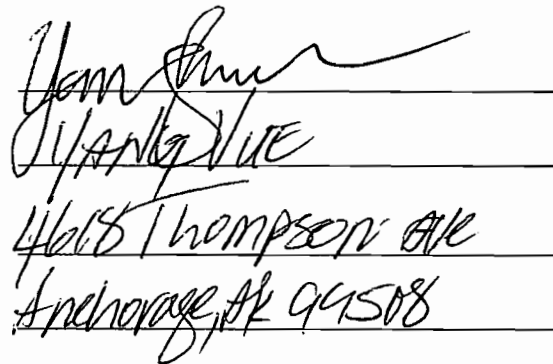 YANG VUE
4618 Thompson Ave
Anchorage, AK 99508